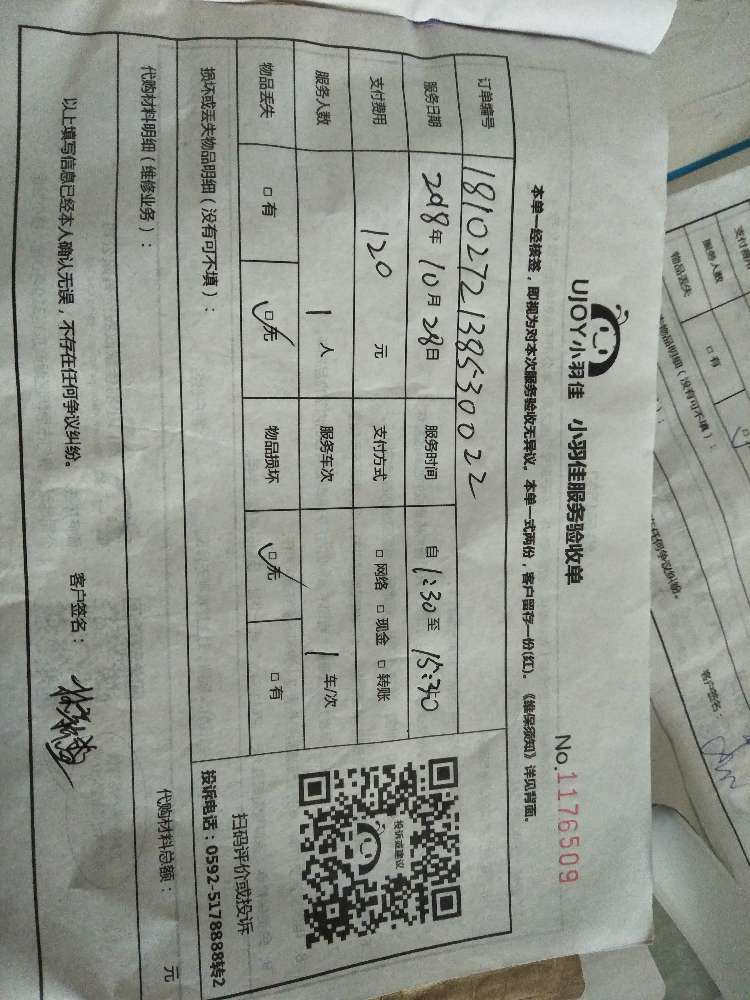 UJOY小羽佳 小羽佳服务验收单
No.1176509
本单一经核签，即视为对本次服务验收无异议。本单一式两份，客户留存一份(红)。《维保须知》详见背面。
订单编号 1810272138530022
服务日期 2018年10月28日 服务时间 自1:30至15:30
支付费用 120元 支付方式 □网络 □现金 □转账
服务人数 1人 服务车次 1车/次
物品丢失 □有 □无 物品损坏 □无 □有
投诉或建议
扫码评价或投诉
投诉电话：0592-5178888转2
损坏或丢失物品明细（没有可不填）：
代购材料明细（维修业务）： 代购材料总额： 元
以上填写信息已经本人确认无误，不存在任何争议纠纷。 客户签名：
服务人数
物品丢失 □有
物品明细（没有可不填）：
客户签名：